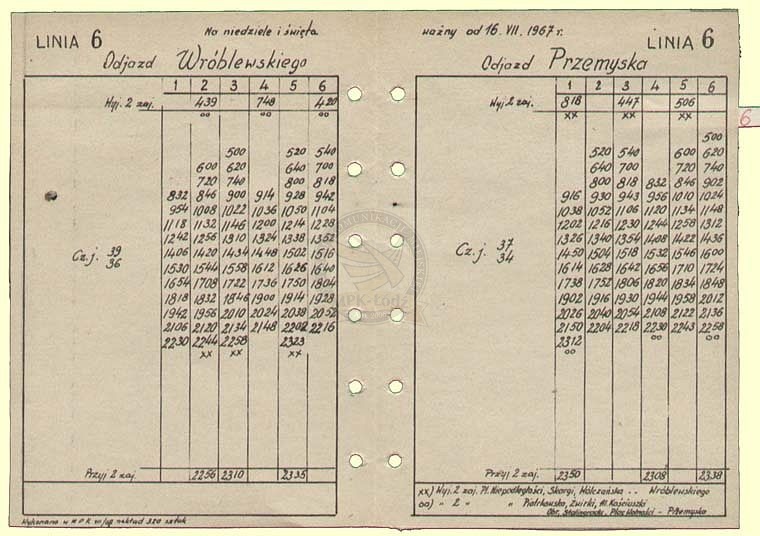 LINIA 6
Na niedziele i święta
Odjazd Wróblewskiego
1 2 3 4 5 6
Wyj. 2 zaj. 439 748 420
oo oo oo
500 520 540
600 620 640 700
720 740 800 818
832 846 900 914 928 942
954 1008 1022 1036 1050 1104
1118 1132 1146 1200 1214 1228
1242 1256 1310 1324 1338 1352
Cz. j. 39
36
1406 1420 1434 1448 1502 1516
1530 1544 1558 1612 1626 1640
1654 1708 1722 1736 1750 1804
1818 1832 1846 1900 1914 1928
1942 1956 2010 2024 2038 2052
2106 2120 2134 2148 2202 2216
2230 2244 2258 2323
xx xx xx
Przyj 2 zaj. 2256 2310 2335
Wykonano w MPK nakład 320 sztuk
ważny od 16. VII. 1967 r.
LINIA 6
Odjazd Przemyska
1 2 3 4 5 6
Wyj 2 zaj. 818 447 506
xx xx xx
500
520 540 600 620
640 700 720 740
800 818 832 846 902
916 930 943 956 1010 1024
1038 1052 1106 1120 1134 1148
1202 1216 1230 1244 1258 1312
1326 1340 1354 1408 1422 1436
Cz. j. 37
34
1450 1504 1518 1532 1546 1600
1614 1628 1642 1656 1710 1724
1738 1752 1806 1820 1834 1848
1902 1916 1930 1944 1958 2012
2026 2040 2054 2108 2122 2136
2150 2204 2218 2230 2243 2258
2312 oo oo
oo
Przyj 2 zaj. 2350 2308 2338
xx) Wyj. 2 zaj. Pl. Niepodległości, Skargi, Wólczańska .. Wróblewskiego
oo) " 2 " " Piotrkowska, Żwirki, Al. Kościuszki
Obr. Stalingradu, Plac Wolności - Przemyska
6
MPK-Łódź